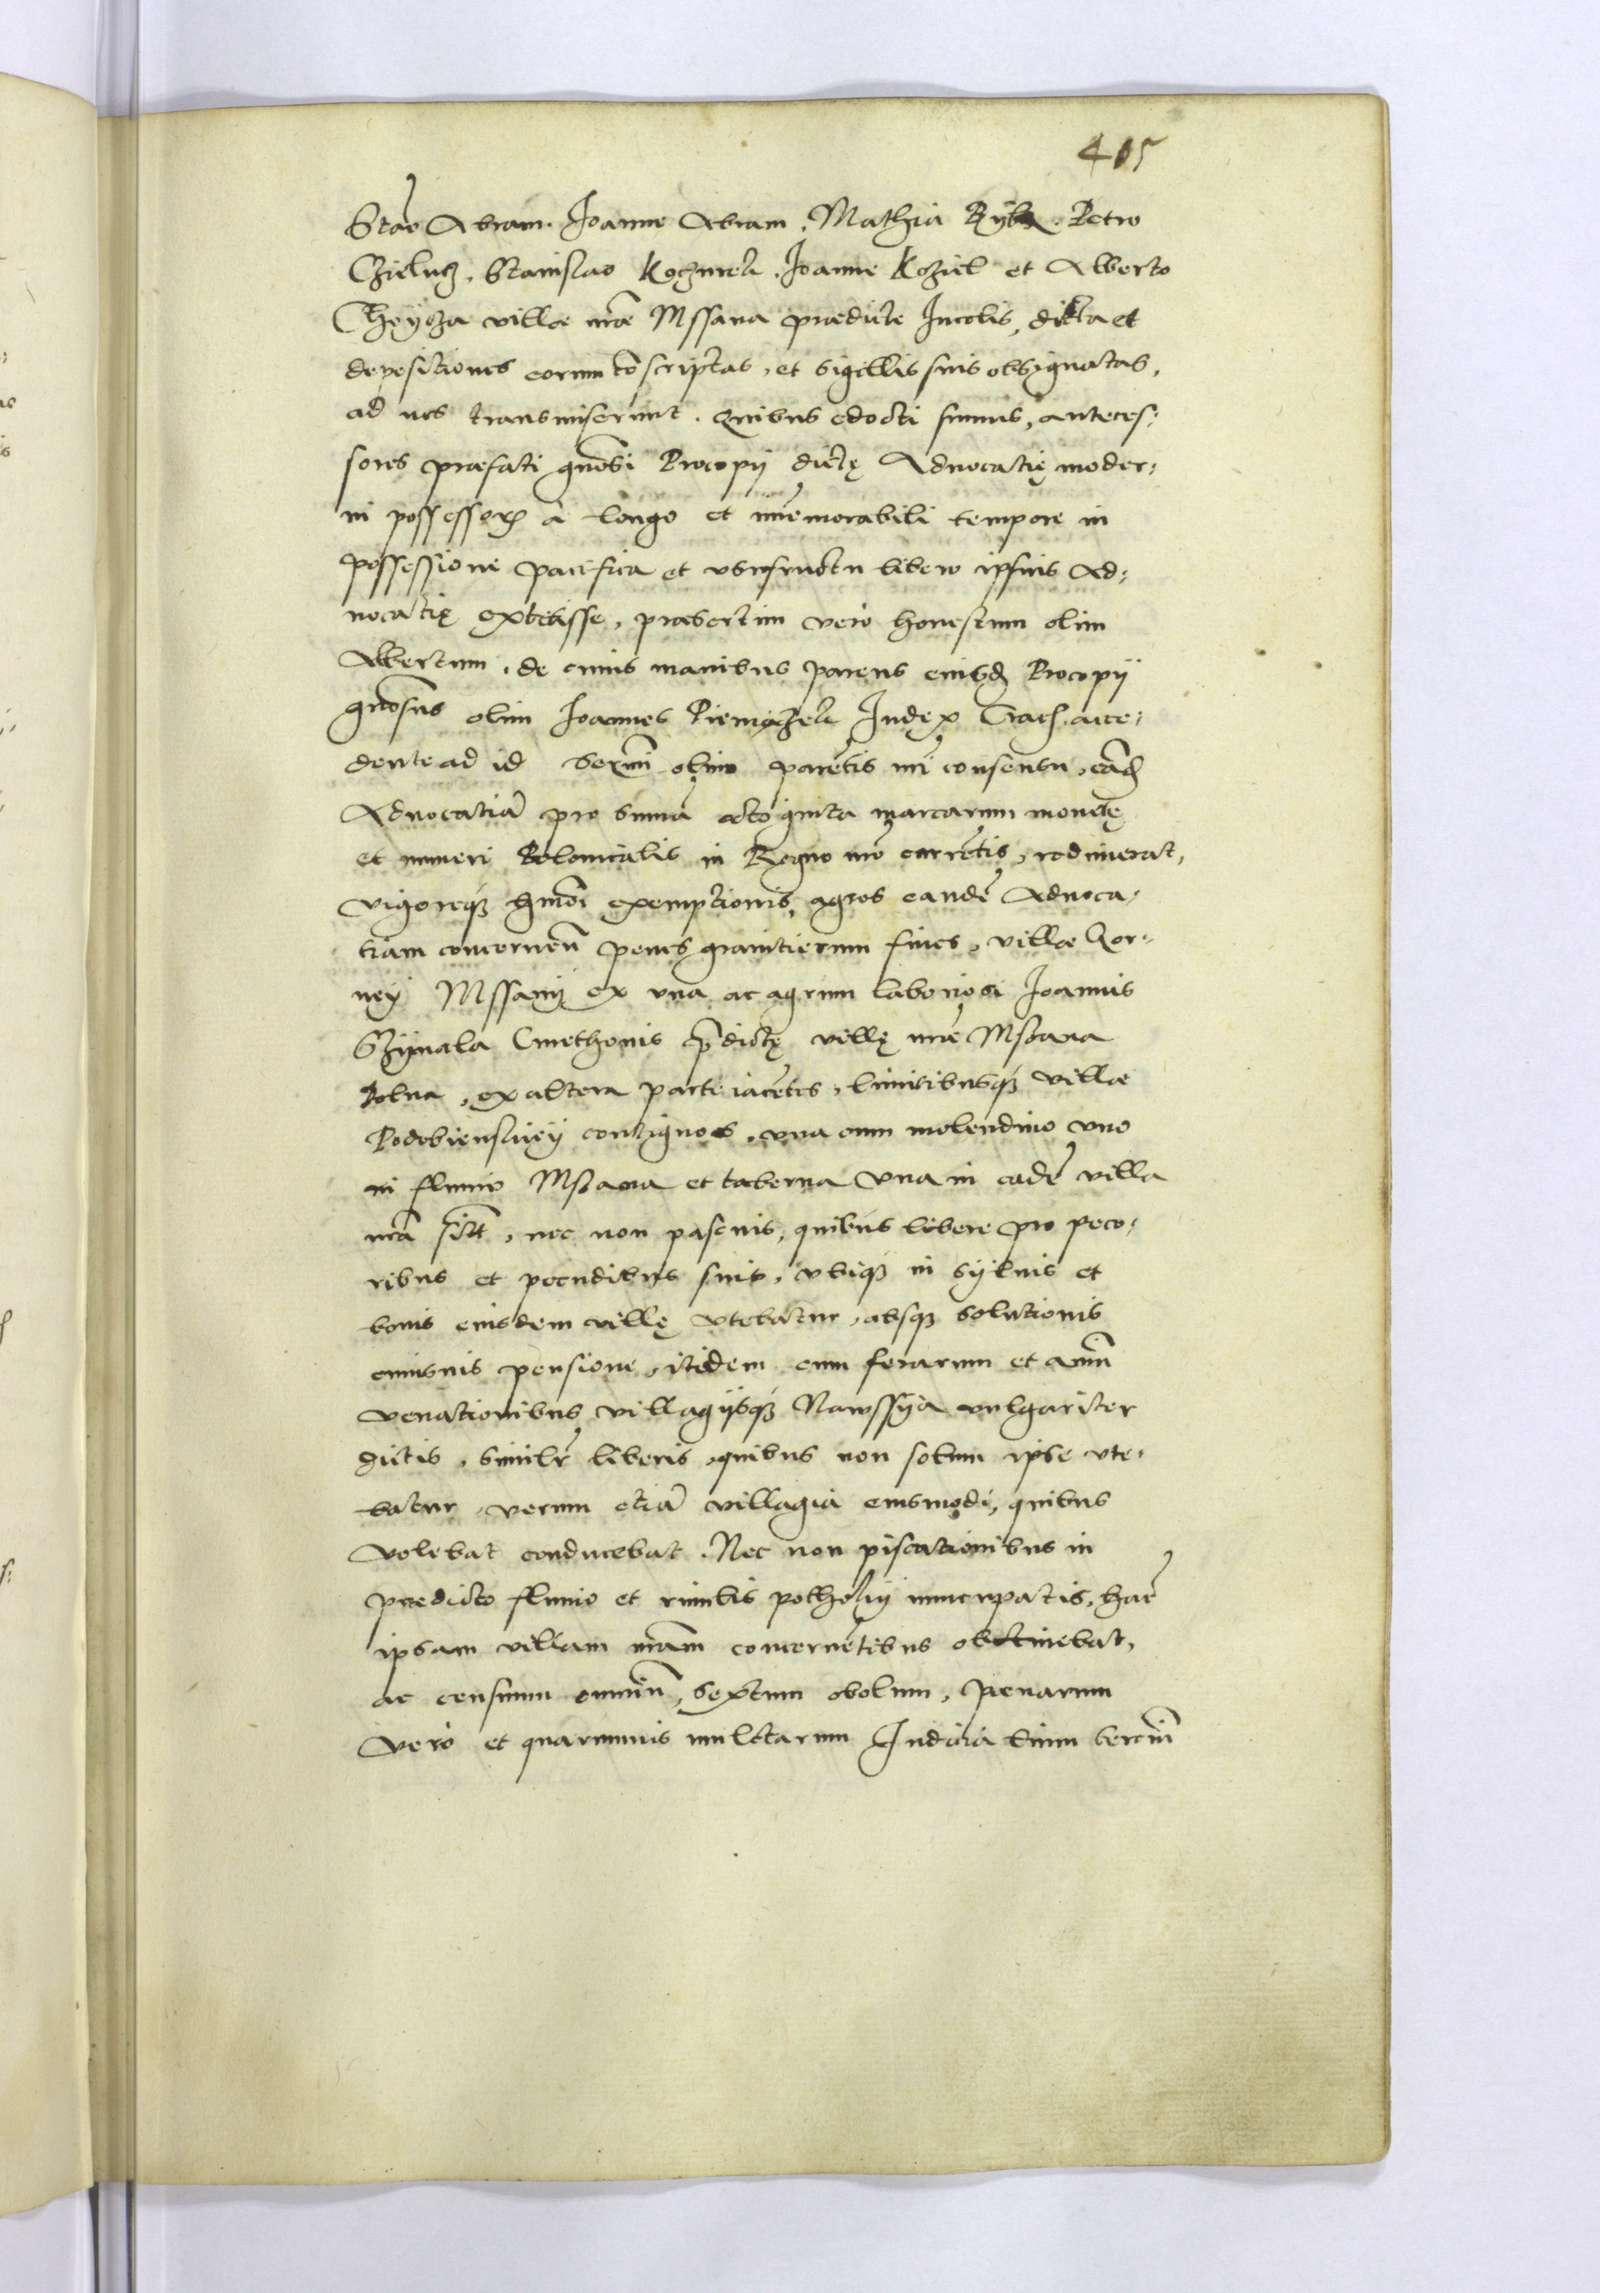 405
Stao Abram. Joanne Abram, Mathia Ryba, Petro
Czieluch, Stanislao Koczurek, Joanne Koziel et Alberto
Theycza villæ nræ Mssana prædicte Incolis, dicta et
depositiones eorum cōscriptas, et sigillis suis obsignatas,
ad nos transmiserunt. Quibus edocti sumus, anteces:
sores præfati gnosi Procopii dictę Advocatię moder:
ni possessoris à longo et imemorabili tempore in
possessione pacifica et vsufructu libero ipsius Ad:
uocatię extitisse, præsertim vero honestum olim
Albertum, de cuius manibus parens eiusd Procopii
gnosus olim Joannes Pieniążek Judex Crac. acce:
dente ad id sermi olim parētis nri consensu, eād
Aduocatiā pro sumā octoginta marcarum monetę
et numeri Polonicalis in Regno nrō currētis, redimerat,
vigoreq hmōi exemptionis, agros eandē Aduoca:
tiam concernen penes granicierum fines, villæ Gor:
ney Mssany ex vna ac agrum laboriosi Joannis
Szynala Cmethonis pdictę villę nrę Mssana
Dolna, ex altera parte iacētes, limitibusq villæ
Podobienskiey contiguos, vna cum molendino vno
in fluuio Mssana et taberna vna in eadē villa
nrā sitt, nec non pascuis, quibus libere pro peco:
ribus et pecudibus suis, vbiq in syluis et
bonis eiusdem villę vtebatur, absq solutionis
cuiusuis pensione, itidem cum ferarum et auiū
venationibus villagiisq Nawssya vulgariter
dictis, similr liberis, quibus non solum ipse vte:
batur, verum etiā villagia eiusmodi, quibus
volebat conducebat. Nec non piscationibus in
prædicto fluuio et riuulis pothoky nuncupatis, hanc
ipsam villam nram concernētibus obtinebat,
ac censuum omniū, sextum obolum, pœnarum
vero et quarumuis mulctarum Judicialium terciū